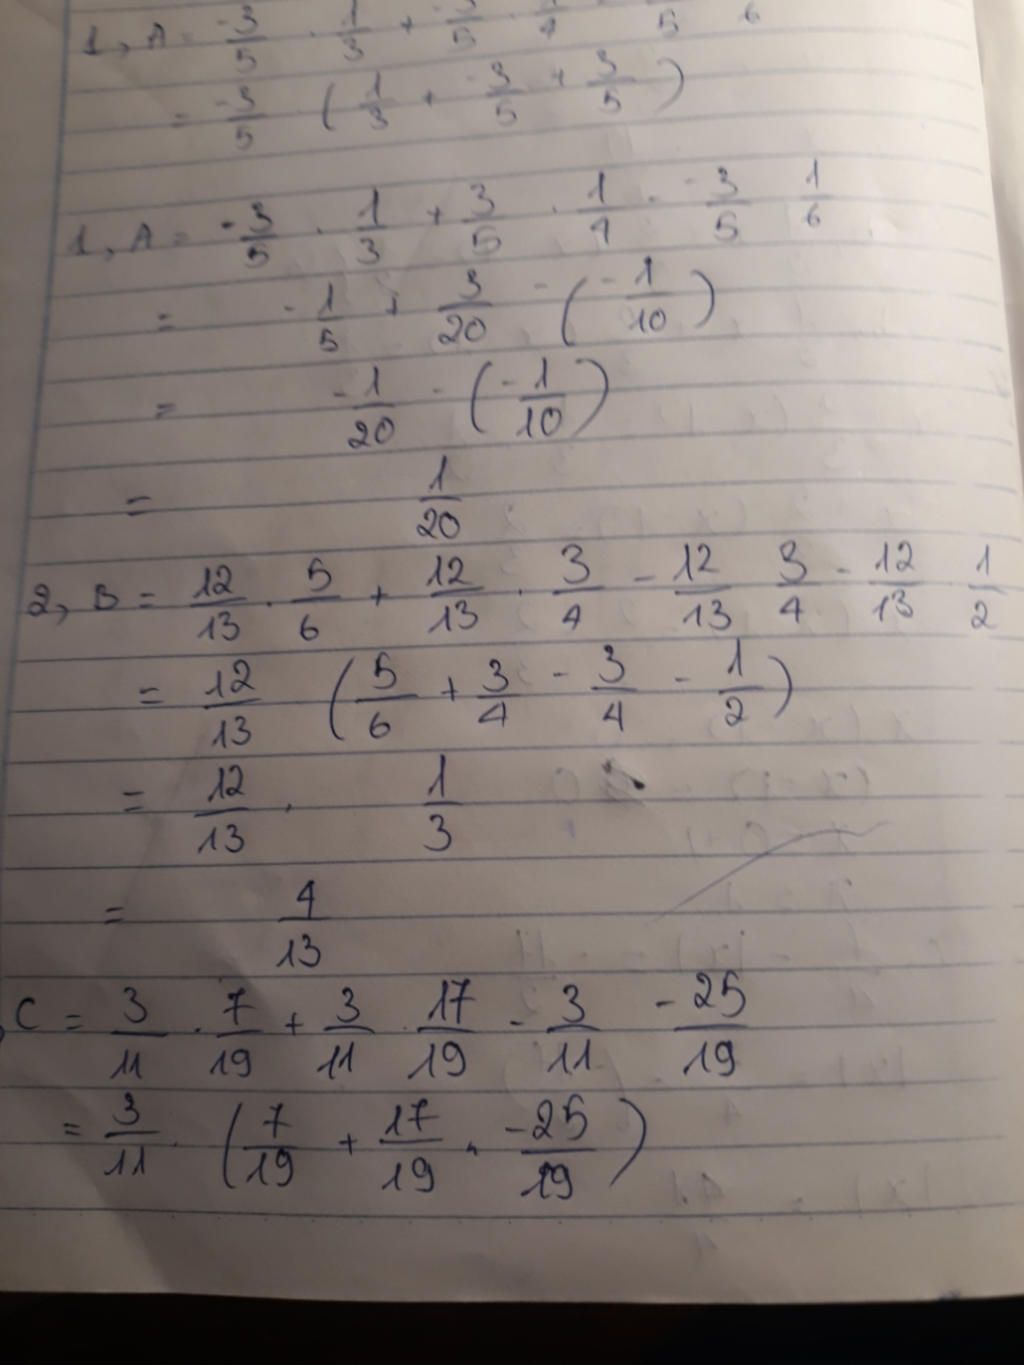 1, A = -3/5 · 1/3 + -3/5 · 1/4 5 6
= -3/5 ( 1/3 + -3/5 + 3/5 )
1, A = -3/5 · 1/3 + 3/5 · 1/4 - -3/5 1/6
= -1/5 + 3/20 - ( -1/10 )
= -1/20 - ( -1/10 )
= 1/20
2, B = 12/13 · 5/6 + 12/13 · 3/4 - 12/13 3/4 - 12/13 1/2
= 12/13 ( 5/6 + 3/4 - 3/4 - 1/2 )
= 12/13 · 1/3
= 4/13
C = 3/11 · 7/19 + 3/11 · 17/19 - 3/11 -25/19
= 3/11 · ( 7/19 + 17/19 - -25/19 )